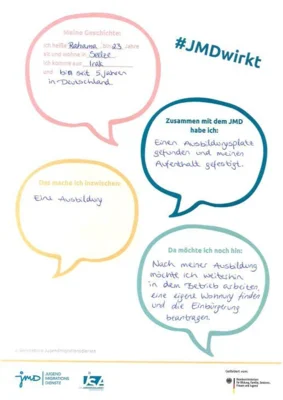 Meine Geschichte:
Ich heiße Rahama, bin 23 Jahre
alt und wohne in Seelze
Ich komme aus Irak
und bin seit 5 Jahren
in Deutschland.
#JMDwirkt
Zusammen mit dem JMD
habe ich:
Einen Ausbildungsplatz
gefunden und meinen
Aufenthalt gefestigt.
Das mache ich inzwischen:
Eine Ausbildung
Da möchte ich noch hin:
Nach meiner Ausbildung
möchte ich weiterhin
in dem Betrieb arbeiten,
eine eigene Wohnung finden
und die Einbürgerung
beantragen.
jmd JUGEND
MIGRATIONS
DIENSTE
Gefördert vom:
Bundesministerium
für Bildung, Familie, Senioren,
Frauen und Jugend